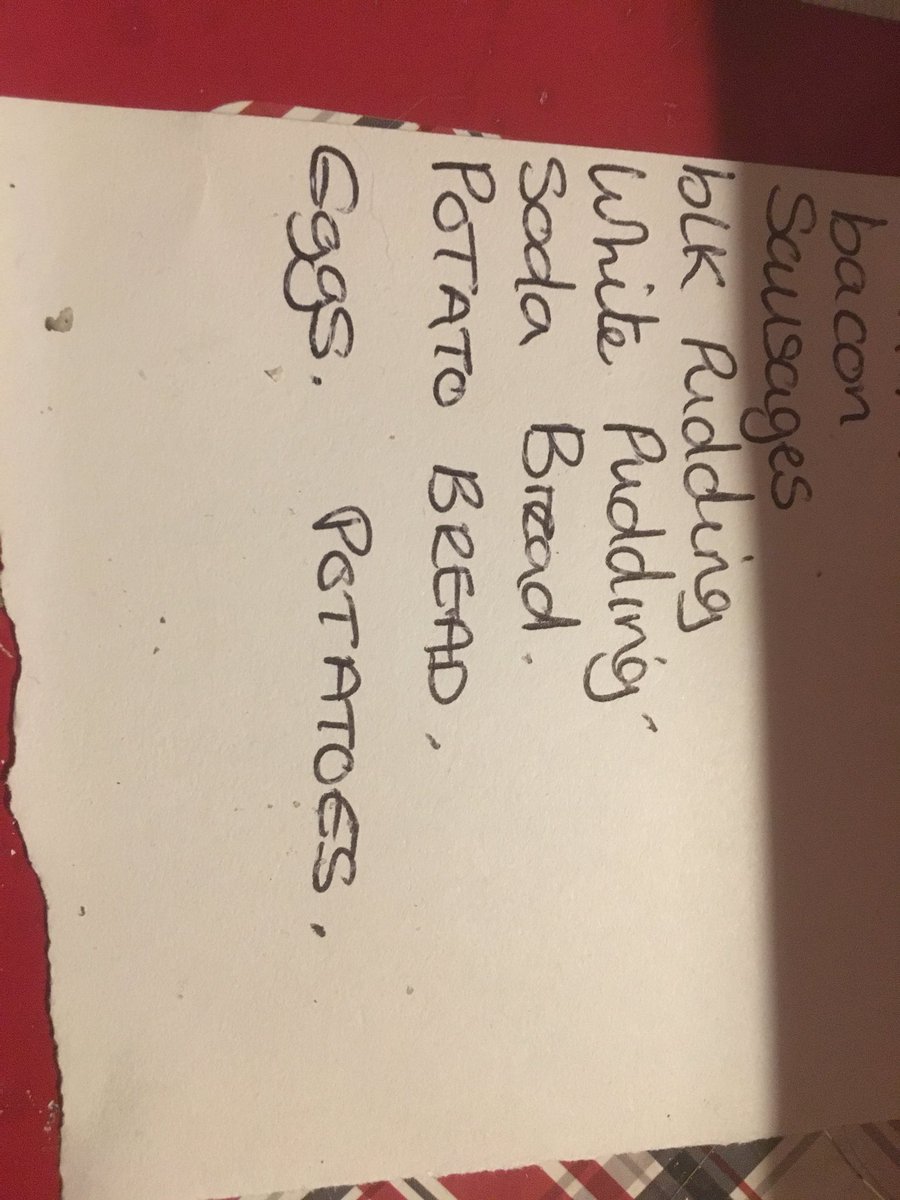 bacon
Sausages
blK Pudding
White Pudding.
Soda Bread.
POTATO BREAD.
Eggs. POTATOES.